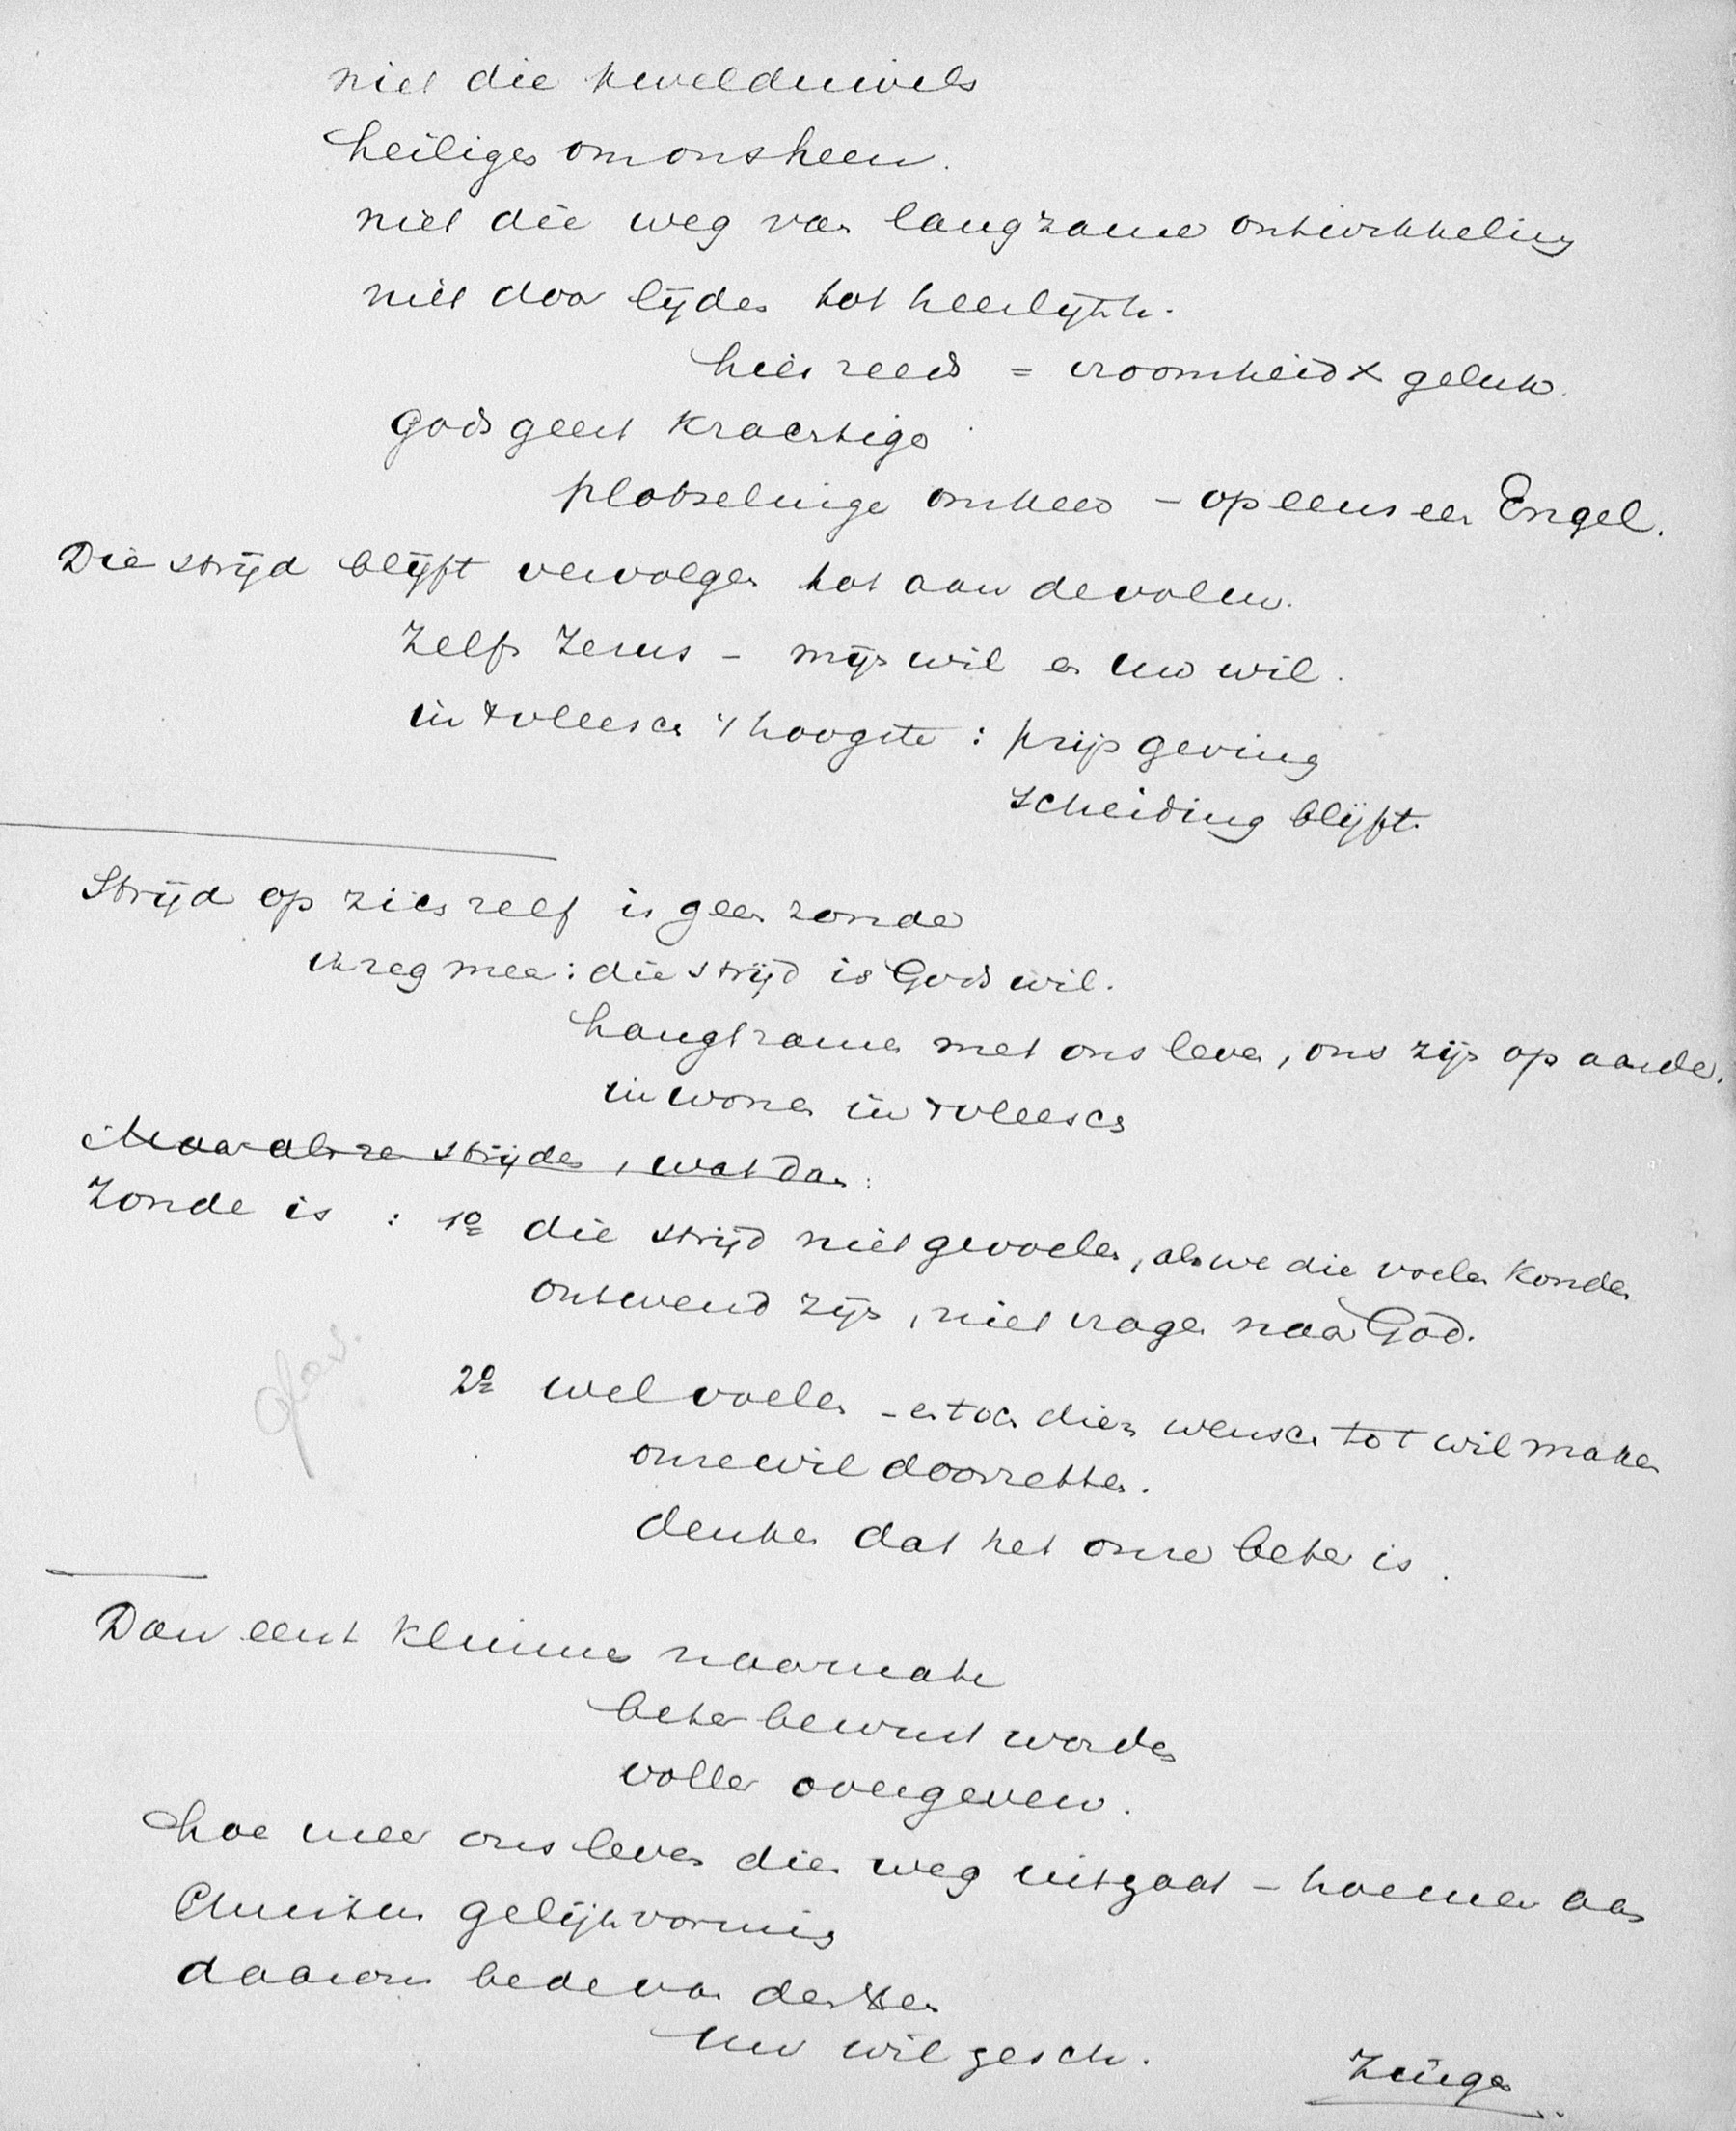 niet die kwelduivels
heiligen om ons heen.
niet die weg van langzame ontwikkeling
niet door lijden tot heerlijkh.
hier reeds = vroomheid x geluk.
Gods geest krachtig
plotselinge omkeer - opeens een Engel.
Die strijd blijft vervolgen tot aan de volen.
Zelfs Jezus - mijn wil en Uw wil.
in 't vleesch 't hoogste : prijsgeving
scheiding blijft.
Strijd op zich zelf is geen zonde
ik zeg meer: die strijd is Gods wil.
hangt samen met ons leven, ons zijn op aarde.
inwonen in 't vleesch
Maar als ze strijden, wat dan:
Zonde is : 1o die strijd niet gevoelen, als we die voelen konden
ontwend zijn, niet vragen naar God.
2o wel voelen - en toch dien wensch tot wil maken
onze wil doorzetten.
denken dat het onze beter is.
Dan eerst klimmen naarmate
beter bewust worden
voller overgeven.
hoe meer ons leven dien weg uitgaat - hoe meer aan
Christus gelijkvormig
daarom bede van den Heer
Uw wil gesch.
Zingen